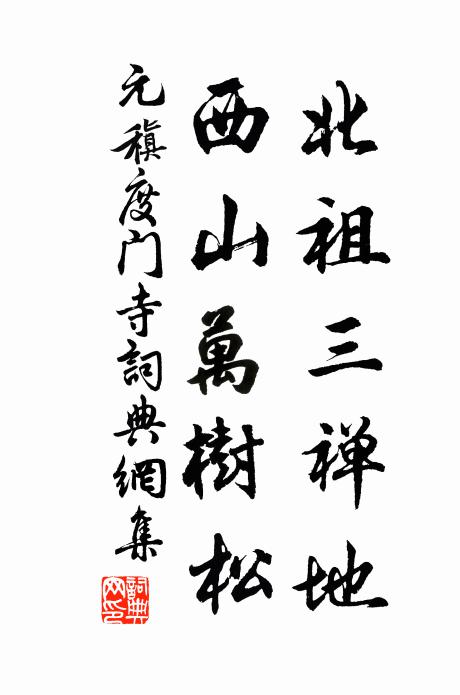 北祖三禅地
西山萬樹松
元稹度门寺詞典網集
詞典網印